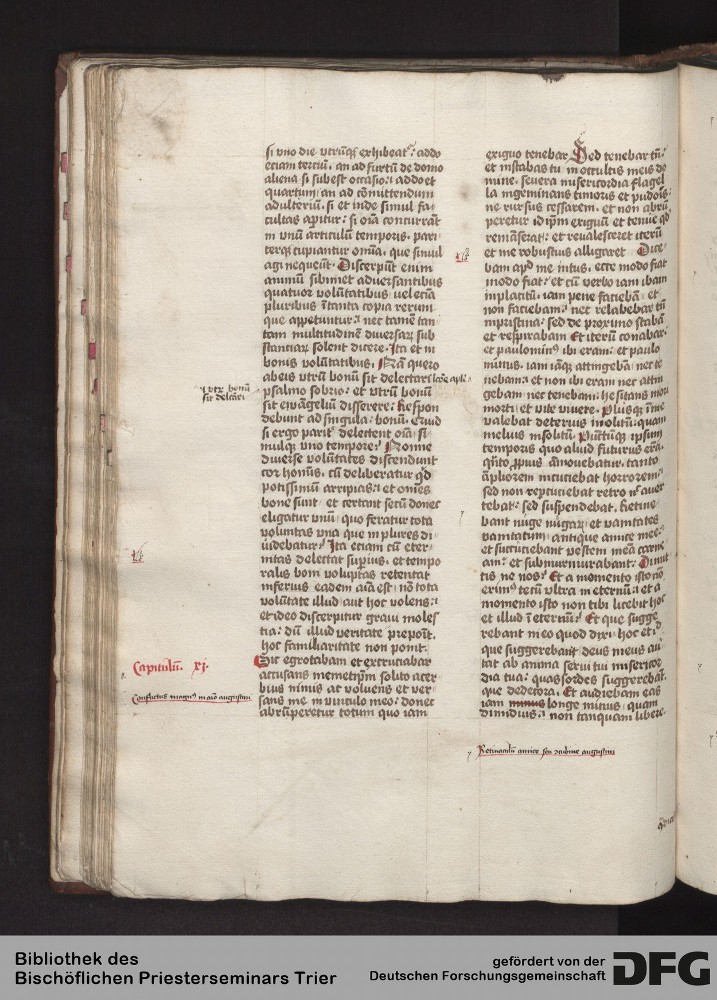 si uno die utrūq; exhibeat²: addo
eciam terciū. an ad furtū de domo
aliena si subest occasio: addo et
quartum an ad cōmittendum
adulteriū. si et inde simul fa-
cultas aꝑitur: si oīa concurrāt
in unū articulū temporis. pari-
terq; cupiantur omīa. que simul
agi nequeūt. Discerpūt enim
animū sibimet aduersantibus
quatuor volūtatibus vel eciā
pluribus ītanta copia rerum
que appetuntur: nec tamē tan-
tam multitudinē diuersaꝝ sub
stanciaꝝ solent dicere. Ita et in
bonis volūtatibus. Nā quero
ab eis utrū bonū sit delectari lcōe apl̄i
psalmo sobrio: et utrū bonū
sit euāgeliū disserere: Respon
debunt ad singula: bonū. Quid
si ergo parit² delectent oīa: si-
mulq; uno tempore: Nonne
diuerse volūtates distendunt
cor homīs. cū deliberatur qd
potissimū arripias: et om̄es
bone sunt. et certant secū donec
eligatur unū quo feratur tota
voluntas una que in plures di-
uidebatur: Ita eciam cū eter-
nitas delectat suꝑius. et tempo
ralis boni voluptas retentat
inferius eadem aīa est: nō tota
volūtate illud aut hoc volens:
et ideo discerpitur graui moles
tia: dū illud veritate preponit.
hoc familiaritate non ponit.
Sic egrotabam et excruciabar
accusans memetip̄m solito acer
bius nimis ac voluens et ver-
sans me in vinculo meo: donec
abrūperetur totum quo iam
utr̄ bonū
sit delcāri
Capitulū. xj.
Conflictus magn⁹ in aīo augustini
exiguo tenebar Sed tenebar tn̄:
et instabas tu in occultis meis do
mine. seuera misericordia flagel
la ingeminans timoris et pudoris:
ne rursus cessarem. et non abrū
peretur id ip̄m exiguū et tenue qd
remāserat: et reualesceret iterū
et me robustius alligaret Dice
bam apd me intus. ecce modo fiat
modo fiat: et cū verbo iam ibam
in placitū. iam pene faciebā et
non faciebam: nec relabebar tn̄
in pristina: sed de proximo stabā
et respirabam Et iterū conabar:
et paulomin⁹ ibi eram: et paulo
minus. iam iāq; attingebā nec te
nebam: et non ibi eram nec attin
gebam nec tenebam. hesitans mori
morti et vite viuere. Plusq; ī me
valebat deterius inolitū: quam
melius insolitū. Punctūq; ipsum
temporis quo aliud futurus erā.
qñto ꝓpius āmouebatur. tanto
āpliorem incuciebat horrorem:
sed non repcuciebat retro nec auer
tebat: sed suspendebat. Retine
bant nuge nugaꝝ et vanitates
vanitatum antique amice mee:
et succuciebant vestem meā carnē
am: et submurmurabant: Dimit
tis ne nos: Et a momento isto nō
erim⁹ tecū ultra in eternū: et a
momento isto non tibi licebit hoc
et illud ī eternū: Et que sugge
rebant in eo quod dixi: hoc et id
que suggerebant deus meus auer
tat ab anima serui tui misericor
dia tua: quas sordes suggerebāt.
que dedecora. Et audiebam eas
iam minus longe minus quam
dimidius: non tanquam libere
Retinaculū amice seu concubine augustini
Bibliothek des
Bischöflichen Priesterseminars Trier
gefördert von der
Deutschen Forschungsgemeinschaft
DFG